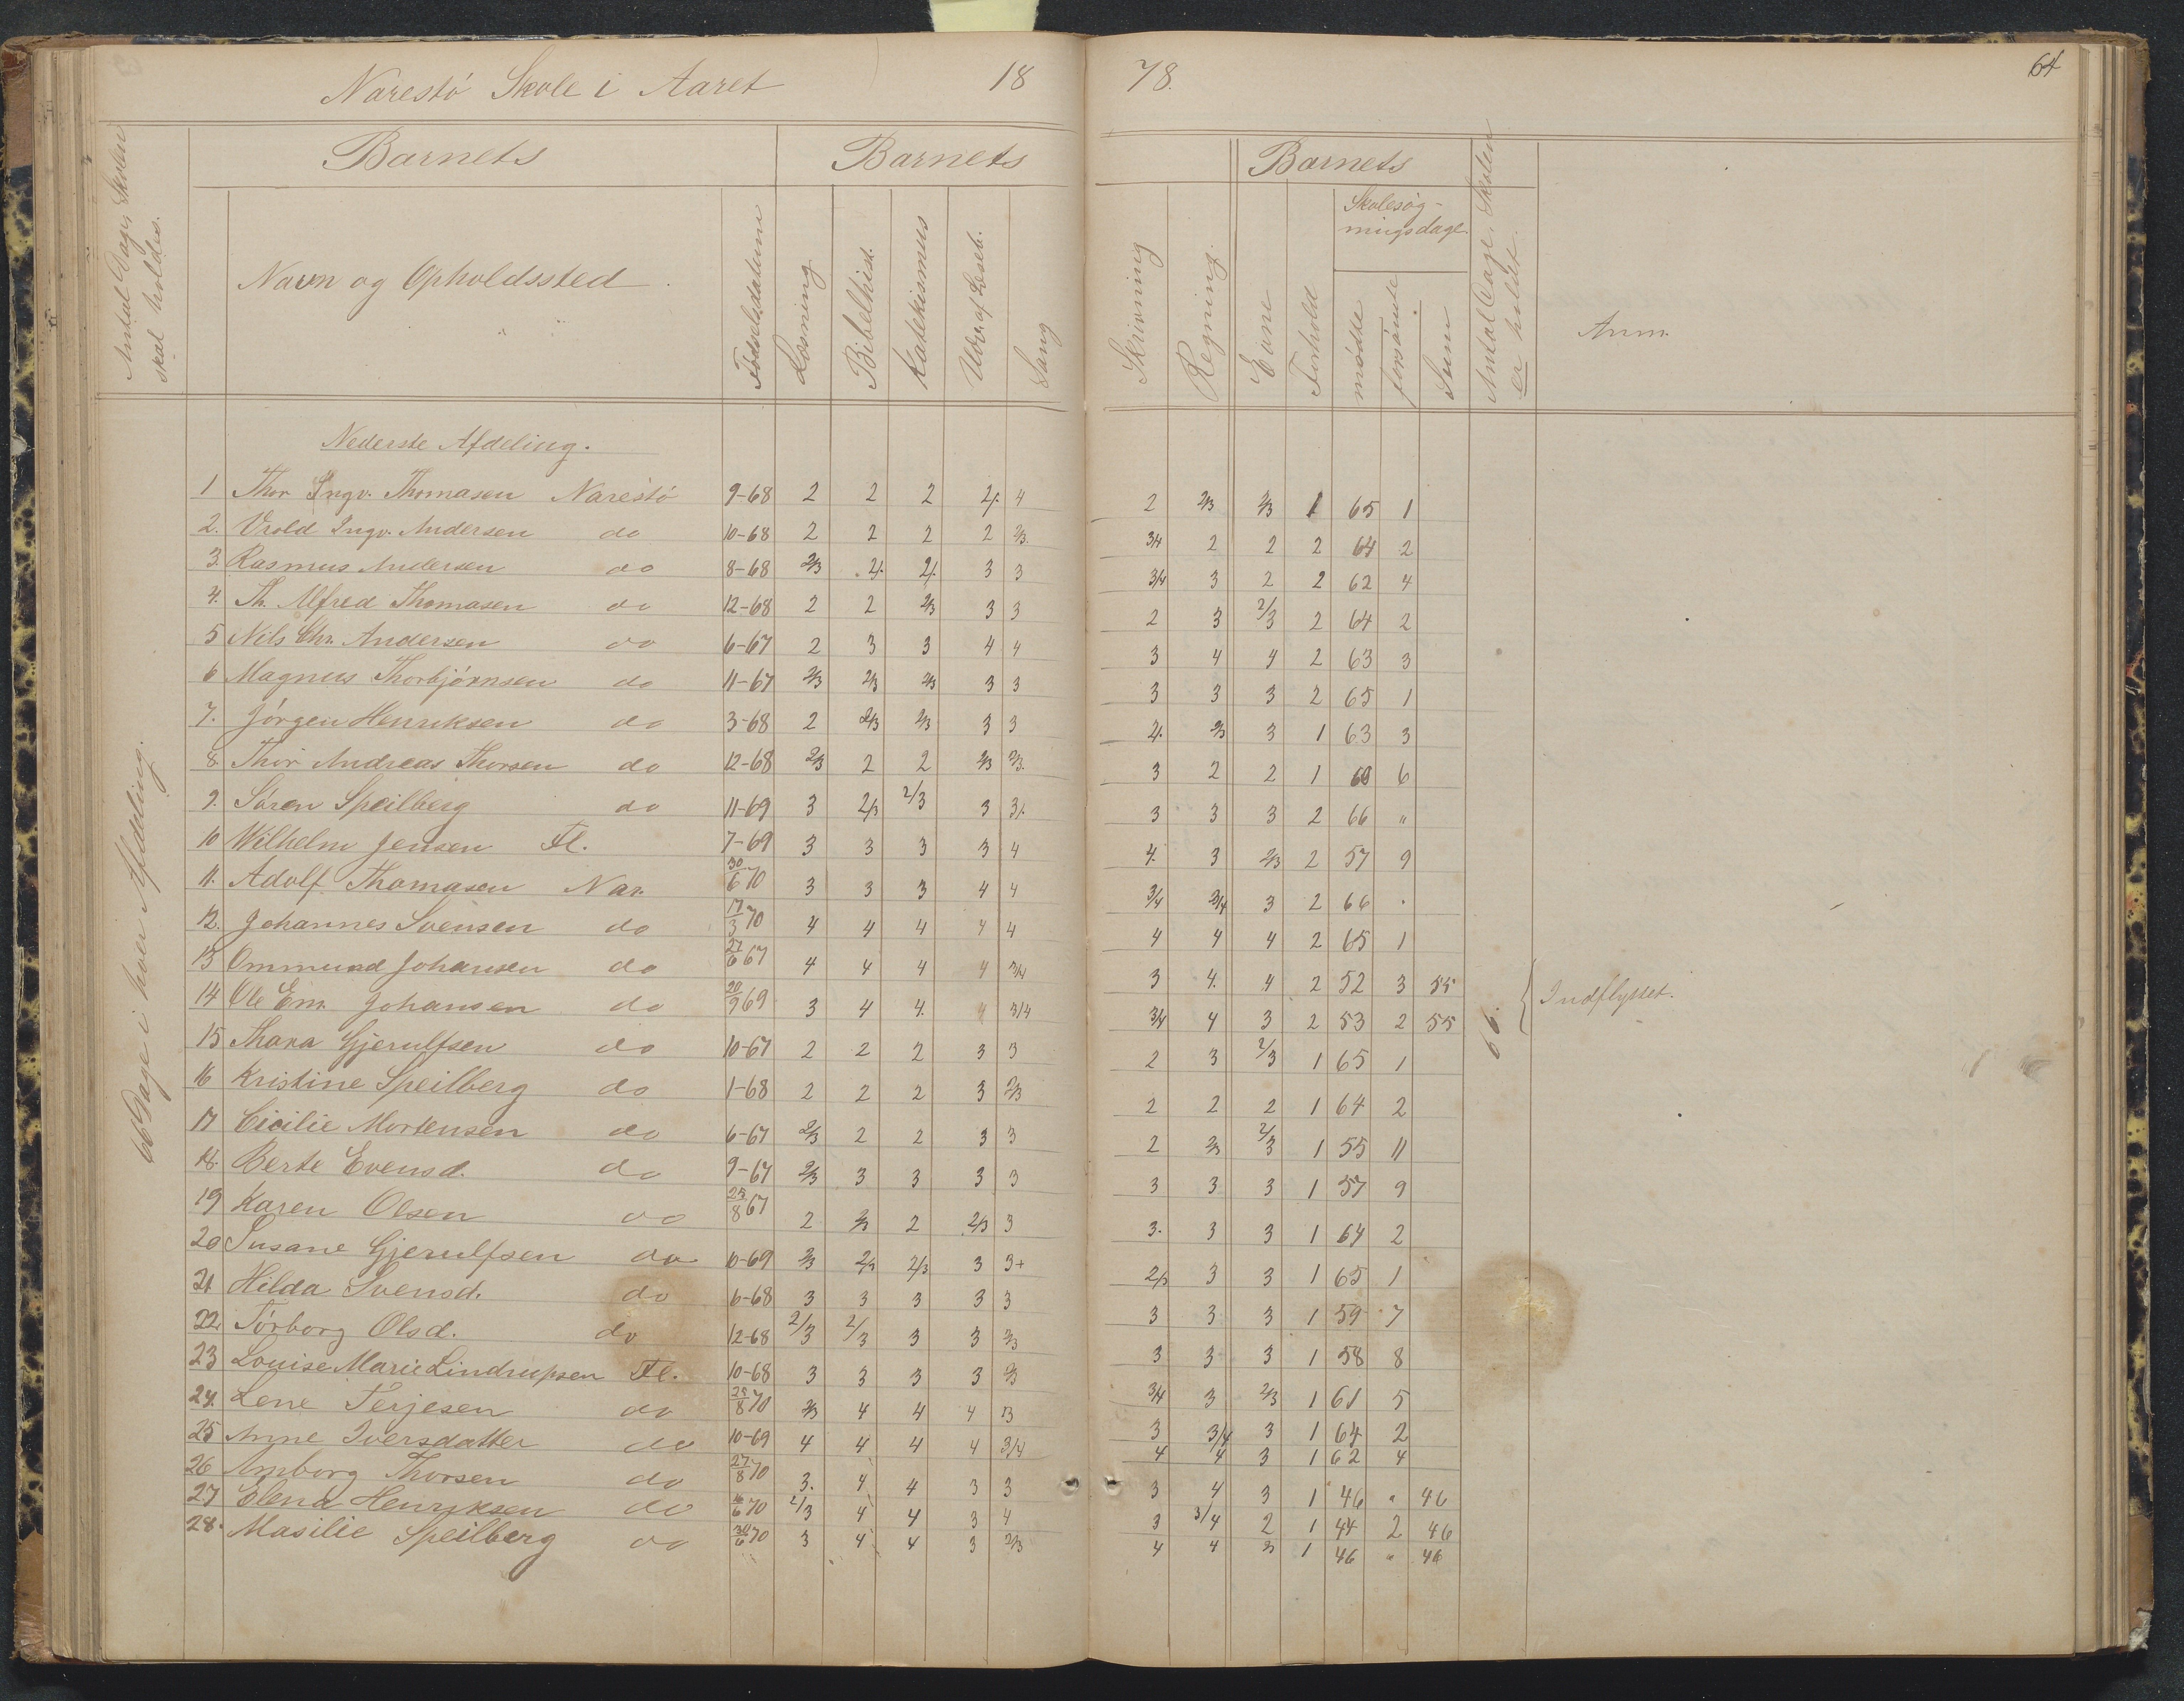 Narestö Skole i Aaret 18 78. 64
Antal Dage, Skolen skal holdes.
Barnets Barnets Barnets
Navn og Opholdssted Fødselsdatum Læsning Bibelhist. Katekismus Udv. af Læseb. Sang Skrivning Regning. Evne Forhold Skolesøgningsdage. mødte forsömte Sum Antal Dage, Skolen er holdt. Anm.
66 Dage i hver Afdeling.
Nederste Afdeling.
1 Thor Ingv. Thomasen Narestö 9-68 2 2 2 2/. 4 2 2/3 2/3 1 65 1
2. Vrold Ingv. Andersen do 10-68 2 2 2 2 2/3. 3/4 2 2 2 64 2
3. Rasmus Andersen do 8-68 2/3 2/. 2/. 3 3 3/4 3 2 2 62 4
4. Th. Alfred Thomasen do 12-68 2 2 2/3 3 3 2 3 2/3 2 64 2
5 Nils Chr. Andersen do 6-67 2 3 3 4 4 3 4 4 2 63 3
6 Magnus Thorbjörnsen do 11-67 2/3 2/3 2/3 3 3 3 3 3 2 65 1
7. Jörgen Henriksen do 3-68 2 2/3 2/3 3 3 2/. 2/3 3 1 63 3
8. Thor Andreas Thorsen do 12-68 2/3 2 2 2/3 2/3. 3 2 2 1 60 6
9. Sören Speilberg do 11-69 3 2/3 2/3 3 3/. 3 3 3 2 66 "
10 Wilhelm Jensen Fl. 7-69 3 3 3 3 4 4. 3 2/3 2 57 9
11. Adolf Thomasen Nar. 30/6 70 3 3 3 4 4 3/4 3/4 3 2 66 .
12. Johannes Svensen do 17/3 70 4 4 4 4 4 4 4 4 2 65 1
13 Ommund Johansen do 27/6 67 4 4 4 4 3/4 3 4. 4 2 52 3 55
14 Ole Em. Johansen do 20/9 69 3 4 4. 4 3/4 3/4 4 3 2 53 2 55 66. { Indflyttet.
15 Thora Gjerulfsen do 10-67 2 2 2 3 3 2 3 2/3 1 65 1
16 Kristine Speilberg do 1-68 2 2 2 3 2/3 2 2 2 1 64 2
17 Cicilie Mortensen do 6-67 2/3 2 2 3 3 2 2/3 2/3 1 55 11
18. Berte Evensd. do 9-67 2/3 3 3 3 3 3 3 3 1 57 9
19 Karen Olsen do 25/8 67 2 2/3 2 2/3 3 3. 3 3 1 64 2
20 Susane Gjerulfsen do 10-69 2/3 2/3 2/3 3 3+ 2/3 3 3 1 65 1
21 Hilda Svensd. do 6-68 3 3 3 3 3 3 3 3 1 59 7
22. Törborg Olsd. do 12-68 2/3 2/3 3 3 2/3 3 3 3 1 58 8
23 Louise Marie Lindrupsen Fl. 10-68 3 3 3 3 2/3 3/4 3 2/3 1 61 5
24. Lene Terjesen do 28/8 70 2/3 4 4 4 3 3 3/4 3 1 64 2
25 Anne Iversdatter do 10-69 4 4 4 4 3/4 4 4 3 1 62 4
26 Amborg Thorsen do 27/8 70 3. 4 4 3 3 3 4 3 1 46 " 46
27 Elena Henriksen do 6/6 70 2/3 4 4 3 4 3 3/4 2 1 44 2 46
28. Masilie Speilberg do 30/6 70 3 4 4 3 2/3 4 4 2/3 1 46 " 46